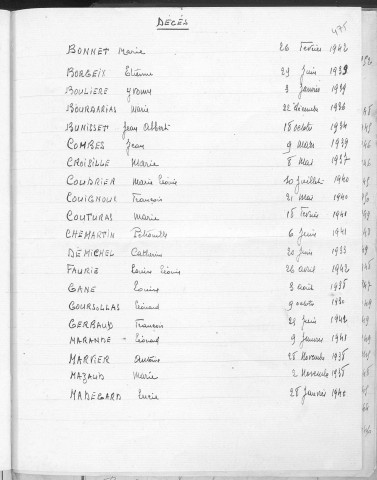 DÉCÈS
475
BONNET Marie 26 Février 1942
BORGEIX Etienne 29 Juin 1939
BOULIERE Yvonne 3 Janvier 1939
BOURDARIAS Marie 22 décembre 1936
BUNISSET Jean Albert 18 octobre 1934
COMBES Jean 9 Mars 1939
CROIZILLE Marie 8 Mai 1937
COUDRIER Marie 20 juillet 1940
COUIGNOUX François 21 Mai 1940
COUTURAS Marie 15 Février 1941
CHEMARTIN Pétronille 6 Juin 1941
DEMICHEL Catherine 20 Juin 1935
FAURIE Louise 26 avril 1942
GANE Louise 3 août 1935
GOURSOLLAS Léonard 9 octobre 1930
GERBAUD François 21 Juin 1942
MARANDE Léonard 9 Janvier 1941
MARVIER Antoine 25 Novembre 1935
MAZAUD Marie 2 Novembre 1935
MADEGARD Lucie 28 Janvier